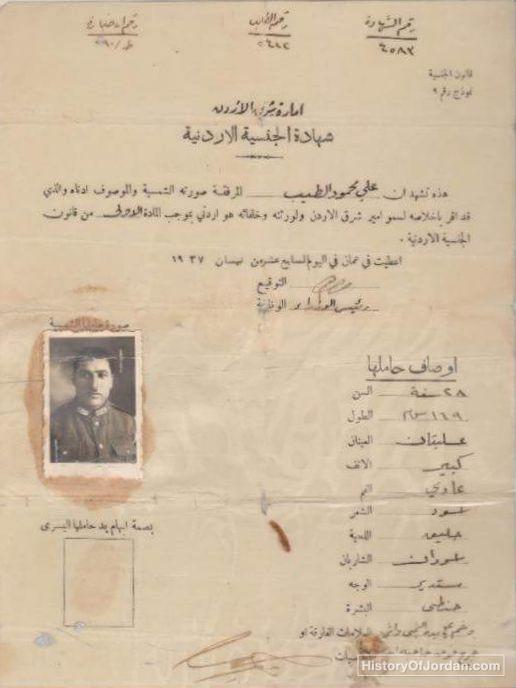 رقم الشهادة
٤٥٨٣
قانون الجنسية
نموذج رقم ٩
امارة شرق الاردن
شهادة الجنسية الاردنية
هذه تشهد ان علي محمود الطيب المرفقة صورته الشمسية والموصوف ادناه والذي
قد اقر باخلاصه لسمو امير شرق الاردن ولورثته وخلفائه هو اردني بموجب المادة الاولى من قانون
الجنسية الاردنية .
اعطيت في عمان في اليوم السابع عشر من نيسان ١٩٣٧
التوقيع
رئيس الوزراء الوظيفة
صورة حاملها الشمسية
اوصاف حاملها
السن ٢٨ سنة
الطول ١٦٩ سم
العينان عسليتان
الانف كبير
الفم عادي
الشعر اسود
اللحية حليق
الشاربان اسودان
الوجه مستدير
البشرة حنطي
العلامات الفارقة او
بصمة ابهام يد حاملها اليسرى
HistoryOfJordan.com